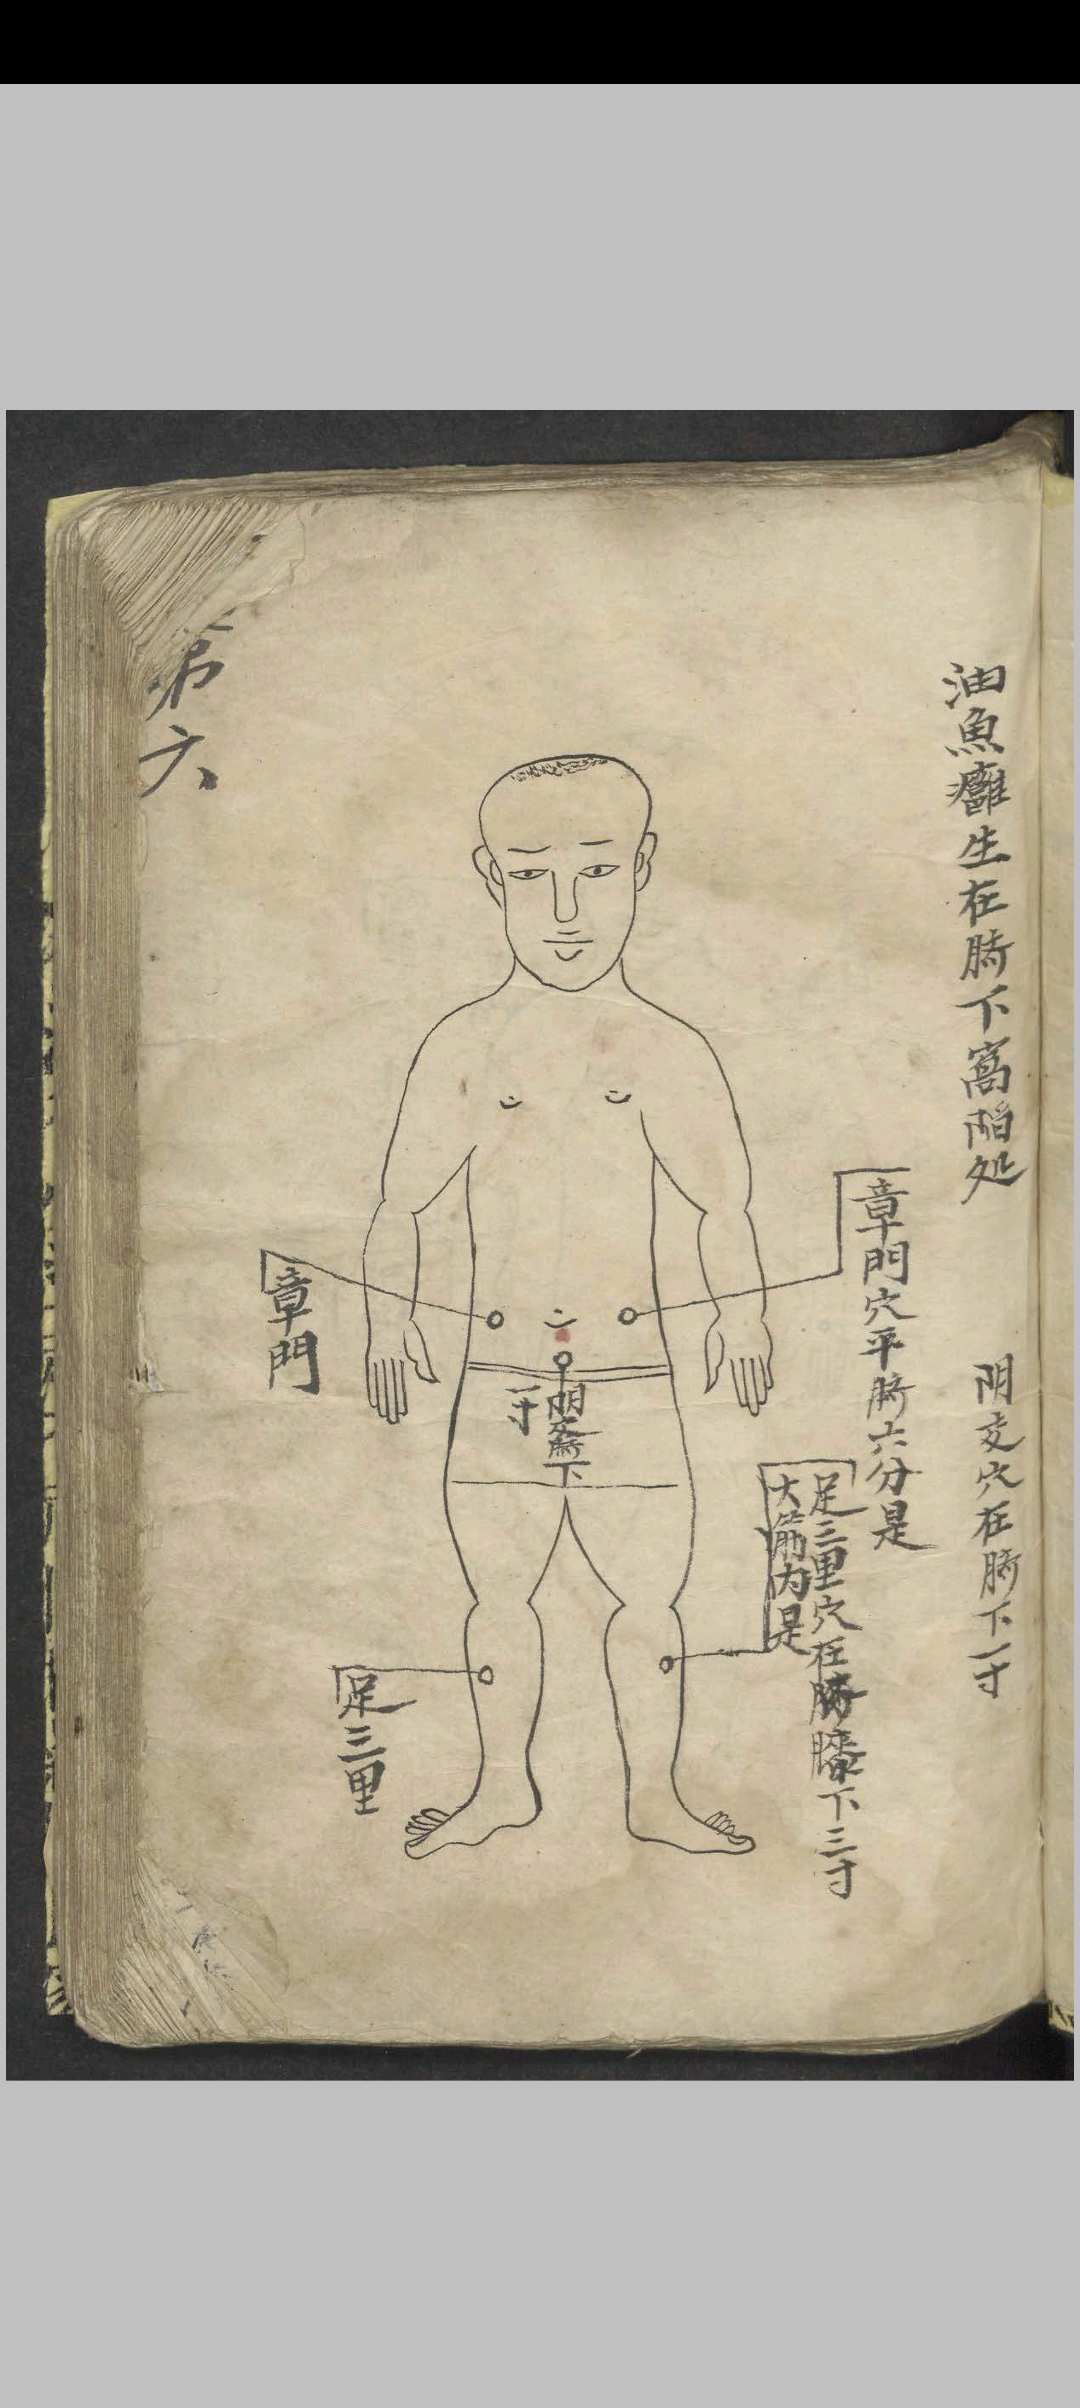 油魚癰生在臍下窩陷处
阴交穴在臍下一寸
章門穴平臍六分是
足三里穴在膝下三寸
大筋内是
阴交臍下
一寸
章門
足三里
第六